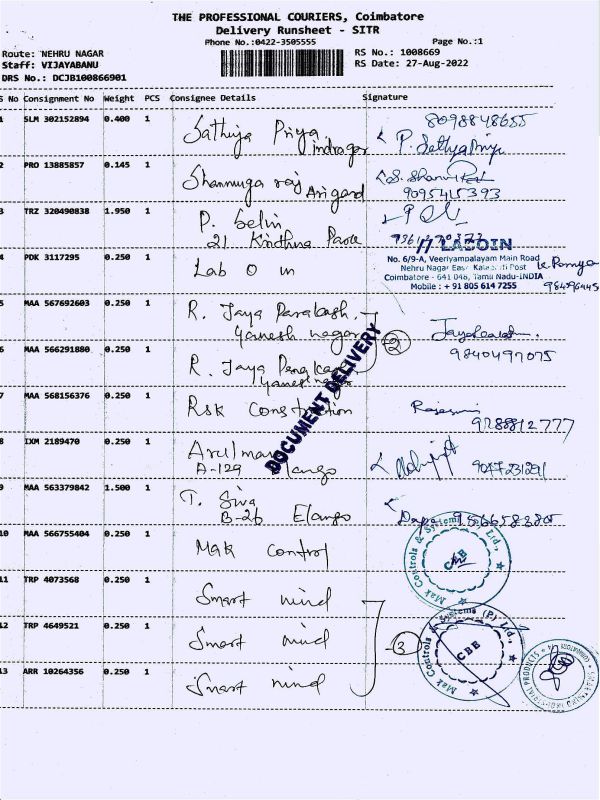 THE PROFESSIONAL COURIERS, Coimbatore
Delivery Runsheet - SITR
Phone No.:0422-3505555 Page No.:1
Route: NEHRU NAGAR RS No.: 1008669
Staff: VIJAYABANU RS Date: 27-Aug-2022
DRS No.: DCJB100866901
S No Consignment No Weight PCS Consignee Details Signature
1 SLM 302152894 0.400 1 Sathiya Priya 8098848655
indragar P. Sathyapriya
2 PRO 13885857 0.145 1 Shanmuga raj
Arigard 9095415393
3 TRZ 320490838 1.950 1 P. Selin
21 Krithna Park
4 PDK 3117295 0.250 1 Lab O m
LABOIN
No. 6/9-A, Veeriyampalayam Main Road
Nehru Nagar East, Kalapatti Post
Coimbatore - 641 048, Tamil Nadu-INDIA
Mobile : + 91 805 614 7255
5 MAA 567692603 0.250 1 R. Jaya Parakash
Ganesh nagar
2
6 MAA 566291880 0.250 1 R. Jaya 9840497075
DOCUMENT DELIVERY
7 MAA 568156376 0.250 1 Rsk Construction
9288812777
8 IXM 2189470 0.250 1
A-129 Elango
9 MAA 563379842 1.500 1 T. Siva
B-26 Elango
10 MAA 566755404 0.250 1 Mak Control
Mak Controls & Systems (P) Ltd.,
CBB
11 TRP 4073568 0.250 1 Smart mind
12 TRP 4649521 0.250 1 Smart mind
3
Mak Controls & Systems (P) Ltd.,
CBB
13 ARR 10264356 0.250 1 Smart mind